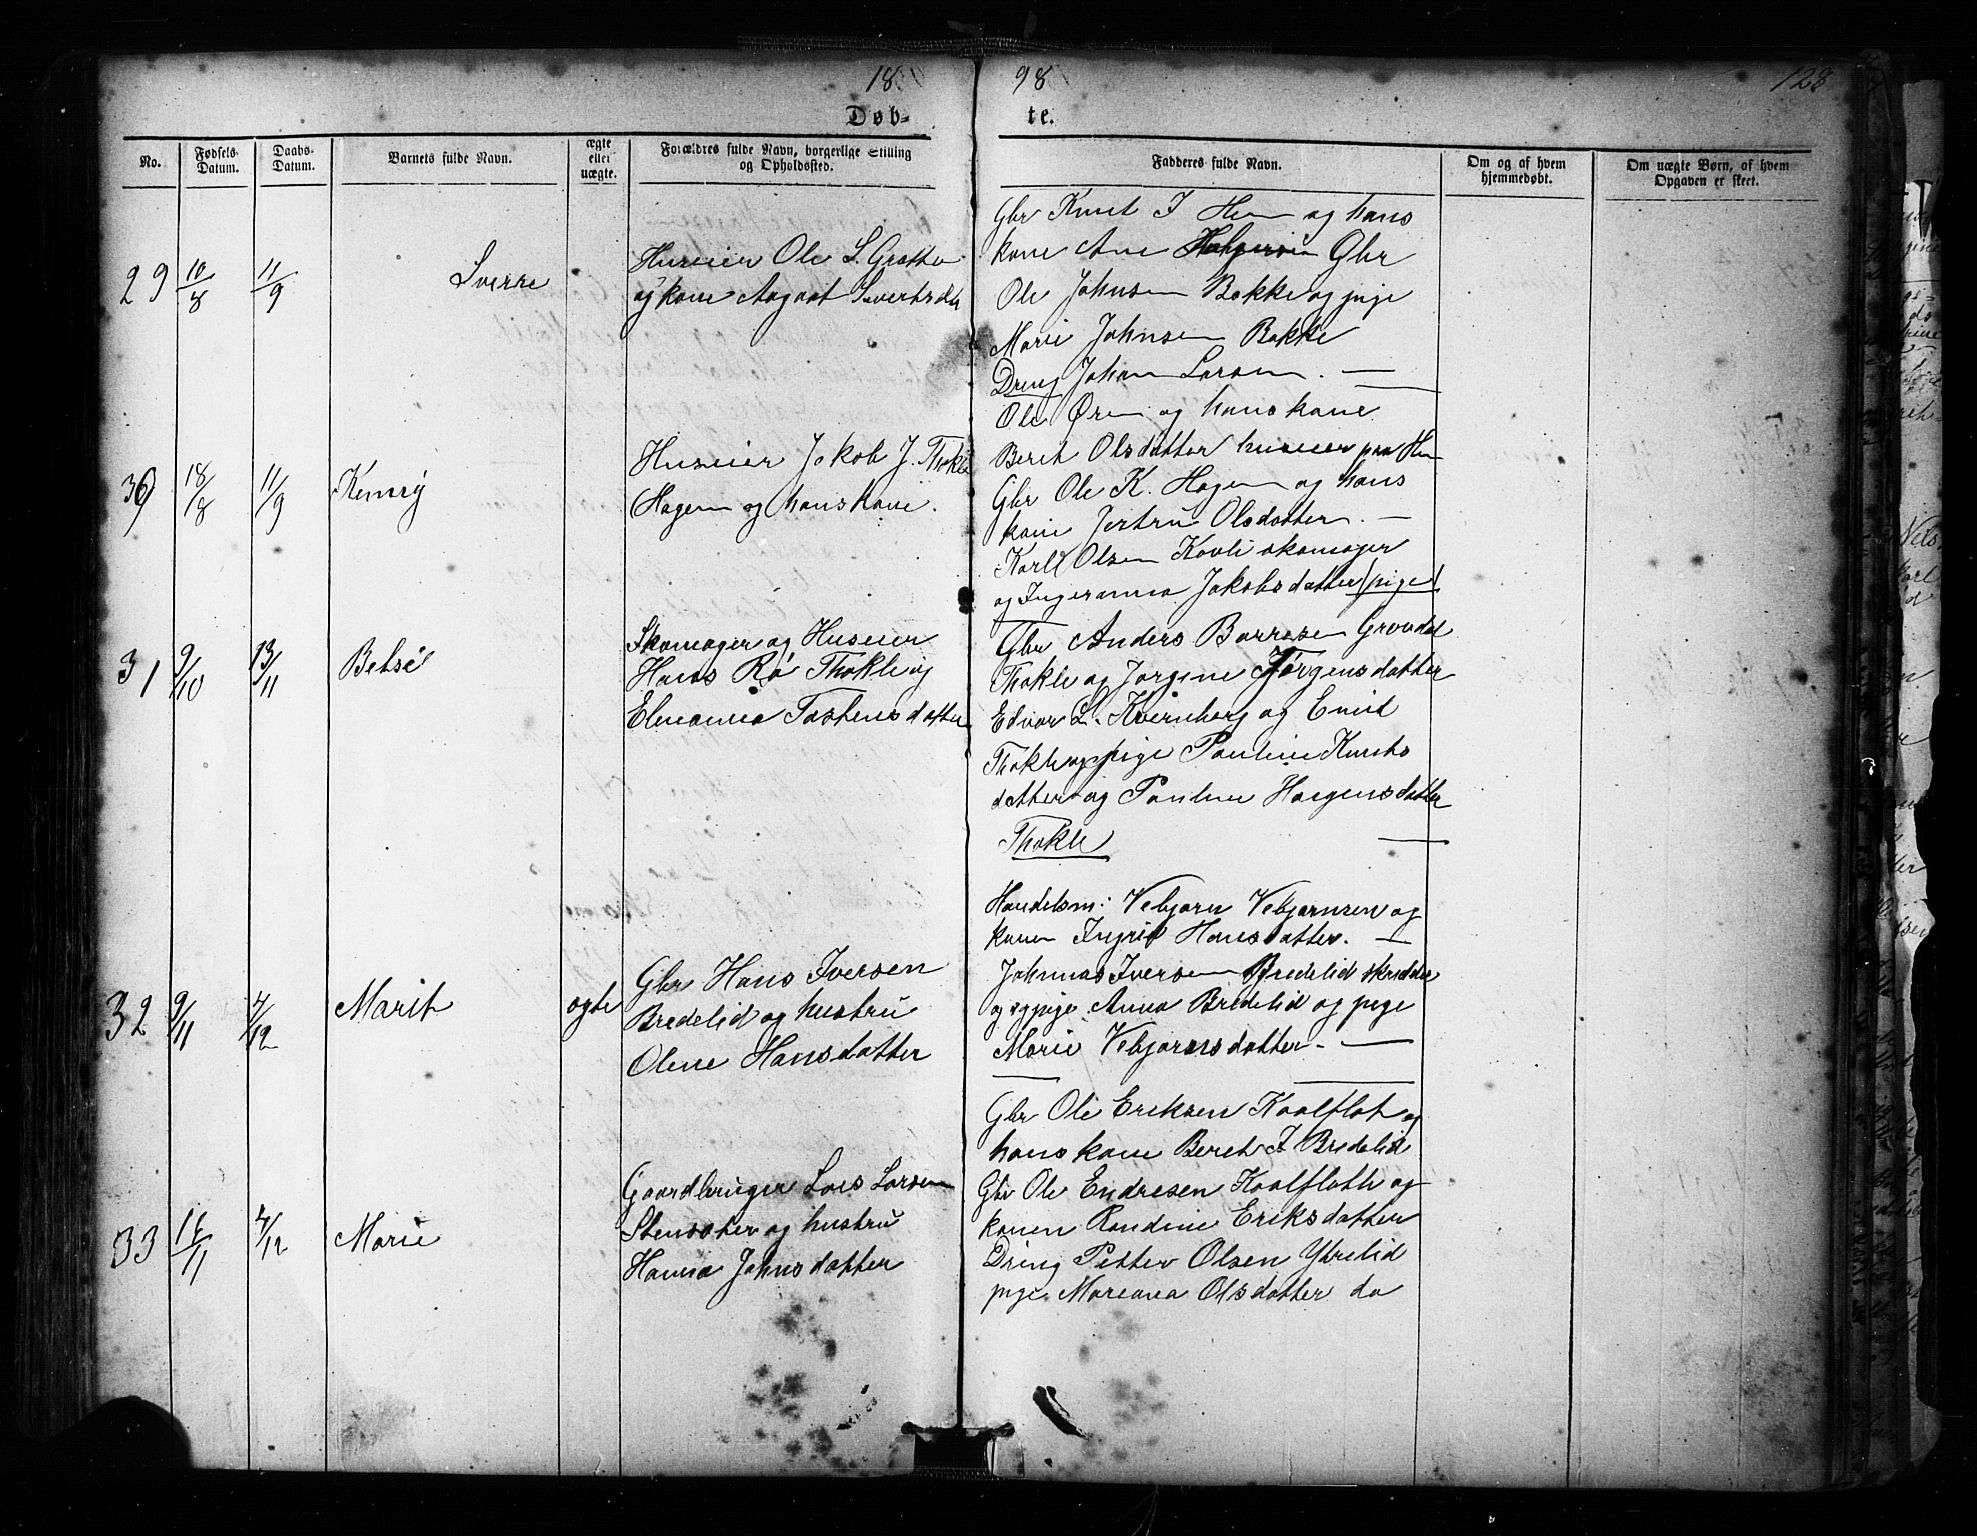 18 98 128
Døb- te.
No.
Fødsels-Datum.
Daabs-Datum.
Barnets fulde Navn.
ægte eller uægte.
Forældres fulde Navn, borgerlige Stilling og Opholdssted.
Fadderes fulde Navn.
Om og af hvem hjemmedøbt.
Om uægte Børn, af hvem Opgaven er skeet.
29 10/8 11/9 Sverre
Huseier Ole S.
og kone Sivertsdtr
Gbr Knut I Hem og hans
kone Ane Gbr
Ole Johnsen Bakke og pige
Marie Johnsen Bakke
Dreng Johan Larsen. —
30 18/8 11/9
Huseier Jakob J. Thokle
Hagen og hans kone.
Ole Øren og hans kone
Berit Olsdatter huseier paa
Gbr Ole K. Hagen og hans
kone Jertru Olsdatter. —
Karl Olsen skomager
og Ingeranna Jakobsdatter (pige)
31 9/10 13/11 Betsé
Skomager og Huseier
Hans Rø Thokle og
Elenanna datter
Gbr Anders
Thokle og Jorgine Jørgensdatter
Edvar L. Kvernberg og
Thokle og pige Pauline
datter og Pauline datter
Thokle —
32 9/11 4/12 Marit ogte
Gbr Hans Iversen
Bredelid og hustru
Olene Hansdatter
Handelsm: Vebjørn Vebjørnsen og
konen Ingrid Hansdatter. —
Johannas Iversen Bredelid
Anna Bredelid og pige
Marie Vebjørnsdatter. —
33 4/12 Marie
Gaardbruger Lars Larsen
og hustru
Hanna Johnsdatter
Gbr Ole Eriksen Kaalflot og
hans kone Beret I Bredelid
Gbr Ole Endresen Kaalfloth og
konen Randine Eriksdatter
Dreng Petter Olsen Ytrelid
pige Mareana Olsdatter do